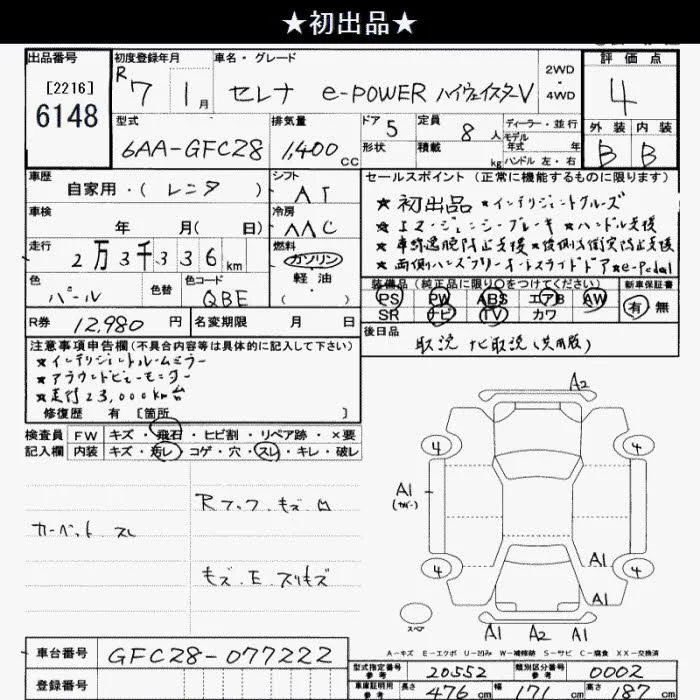 ★初出品★
出品番号
[2216]
6148
初度登録年月
R7 1月
車名・グレード
セレナ e-POWER ハイウェイスターV
2WD
・
4WD
評価点
4
外装 内装
B B
型式
6AA-GFC28
排気量
1,400 cc
ドア 5
形状
定員 8人
積載 kg
ディーラー・並行
モデル
年式 年
ハンドル 左・右
車歴
自家用・( レンタ )
シフト
AT
車検
年 月( 日)
冷房
AAC
走行
2万3千336km
燃料
ガソリン
軽油
( )
色
パール
色替
色コード
QBE
R券 12,980円
名変期限 月 日
セールスポイント (正常に機能するものに限ります)
★初出品 ★インテリジェントクルーズ
★エマージェンシーブレーキ ★ハンドル支援
★車線逸脱防止支援 ★後側方衝突防止支援
★両側ハンズフリーオートスライドドア ★e-Pedal
装備品 (純正品に限り○をつけてください)
新車保証書
PS PW ABS エアB AW
SR ナビ TV カワ
有 無
後日品
取説 ナビ取説(共用版)
注意事項申告欄(不具合内容等は具体的に記入して下さい)
★インテリジェントルームミラー
★アラウンドビューモニター
★走行23,000km台
修復歴 有 [箇所 ]
検査員 FW キズ・飛石・ヒビ割・リペア跡・×要
記入欄 内装 キズ・汚レ・コゲ・穴・スレ・キレ・破レ
Rフック.キズ.凹
カーペット スレ
キズ.E.スリキズ
A2
4 4
A1
(カバー)
A1
4 4
A1
スペア
A1 A2 A1
A-キズ E-エクボ U-凹み W-補修跡 S-サビ C-腐食 XX-交換済
車台番号 GFC28-077222
登録番号
型式指定番号 参考 20552
類別区分番号 参考 0002
車庫証明用 参考 長さ 476cm 幅 171cm 高さ 187cm